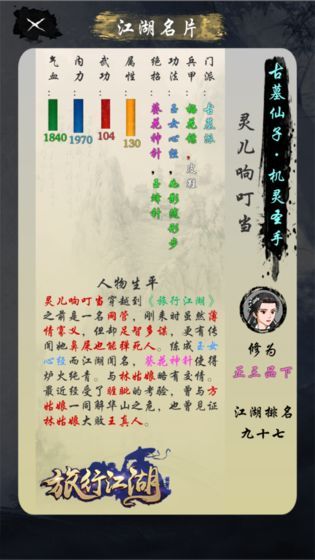 江湖名片
古墓仙子·机灵圣手
灵儿响叮当
门派：古墓派
兵甲：梅花镖，皮鞋
功法：玉女心经，影随形步
绝招：葵花神针，玉蜂针
属性：130
武功：104
内力：1970
气血：1840
人物生平
灵儿响叮当穿越到《旅行江湖》
之前是一名网管，刚来时虽然薄
情寡义，但却足智多谋，更有传
闻她鼻屎也能弹死人。炼成玉女
心经而江湖闻名，葵花神针使得
炉火纯青。与林姑娘略有交情。
最近经受了的考验，曾与方
姑娘一同解华山之危，也曾见证
林姑娘大败王真人。
修为
正三品下
江湖排名
九十七
旅行江湖